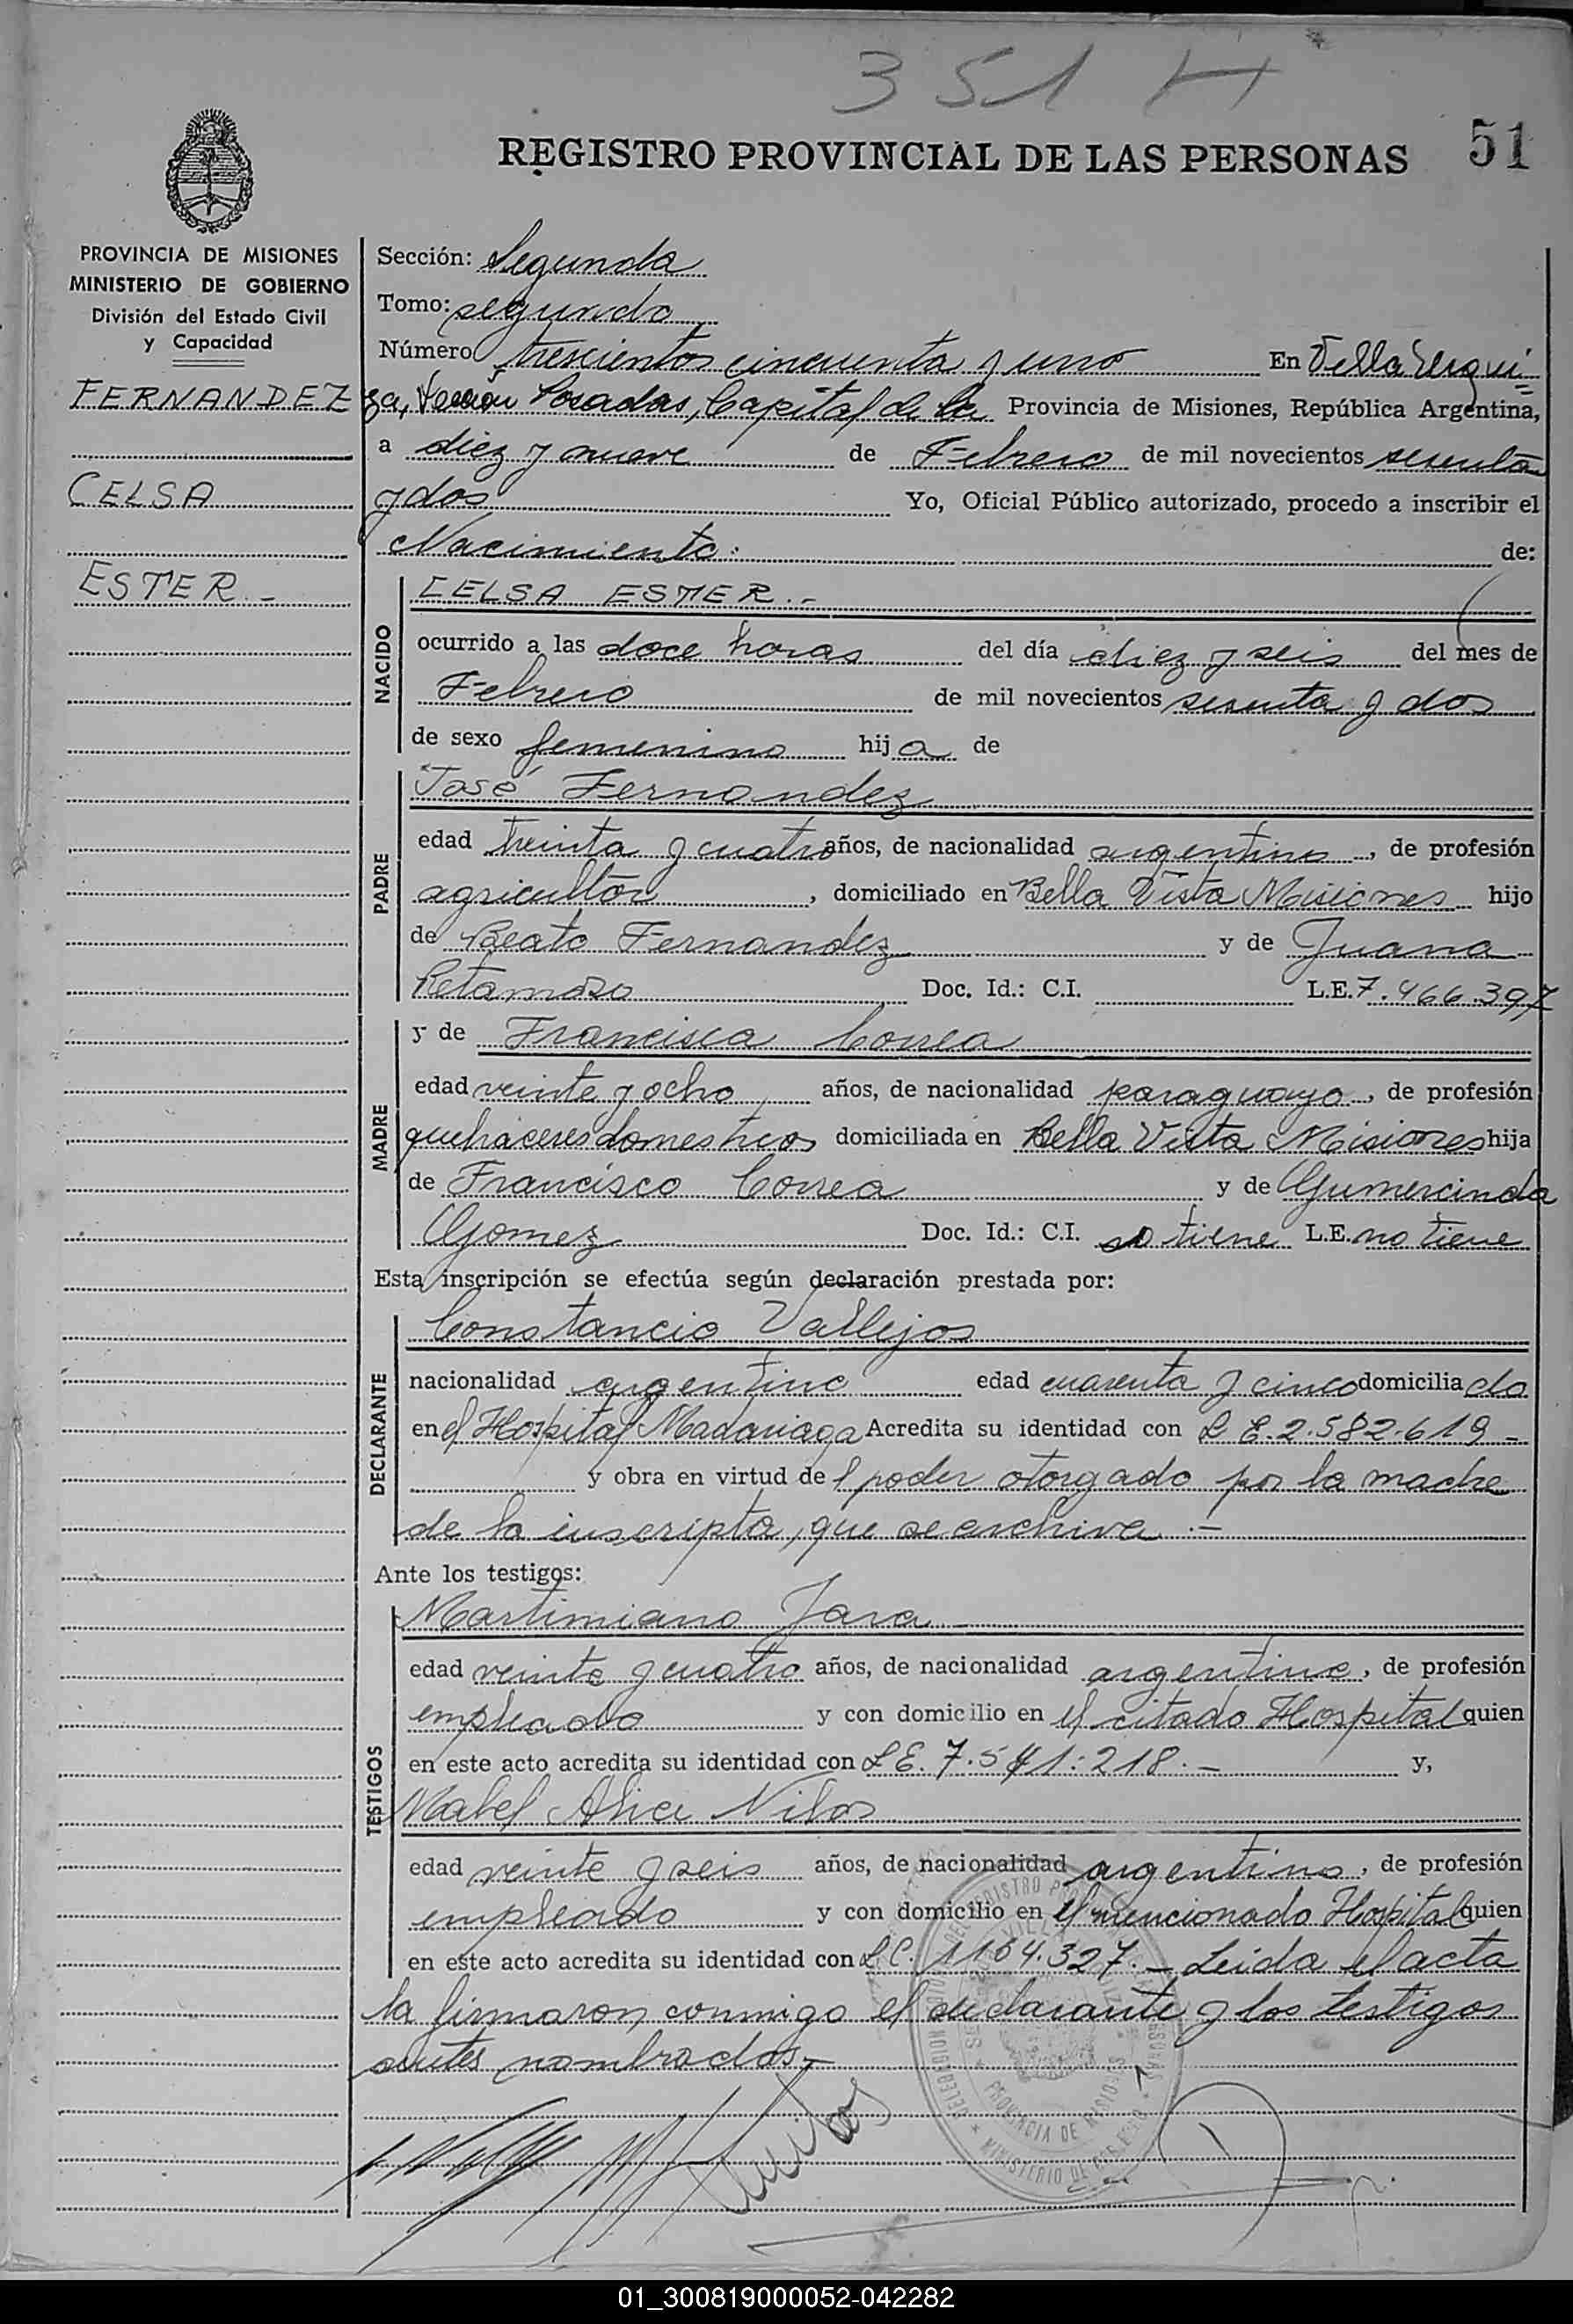 351 H
REGISTRO PROVINCIAL DE LAS PERSONAS 51
PROVINCIA DE MISIONES
MINISTERIO DE GOBIERNO
División del Estado Civil
y Capacidad
FERNANDEZ
CELSA
ESTER.-
Sección: Segunda
Tomo: segundo
Número trescientos cincuenta y uno En Villa Urqui=
za, Sección Posadas, Capital de la Provincia de Misiones, República Argentina,
a diez y nueve de Febrero de mil novecientos sesenta
y dos Yo, Oficial Público autorizado, procedo a inscribir el
Nacimiento: de:
NACIDO
CELSA ESTER.-
ocurrido a las doce horas del día diez y seis del mes de
Febrero de mil novecientos sesenta y dos
de sexo femenino hija de
PADRE
José Fernandez
edad treinta y cuatro años, de nacionalidad argentino, de profesión
agricultor, domiciliado en Bella Vista Misiones hijo
de Beato Fernandez y de Juana
Retamozo Doc. Id.: C.I. L.E. 7.466.397
MADRE
y de Francisca Correa
edad veinte y ocho años, de nacionalidad paraguayo, de profesión
quehaceres domesticos domiciliada en Bella Vista Misiones hija
de Francisco Correa y de Gumercinda
Gomez Doc. Id.: C.I. no tiene L.E. no tiene
Esta inscripción se efectúa según declaración prestada por:
DECLARANTE
Constancio Vallejos
nacionalidad argentino edad cuarenta y cinco domiciliado
en el Hospital Madariaga Acredita su identidad con L E. 2.582.619-
y obra en virtud del poder otorgado por la madre
de la inscripta, que se archiva.-
Ante los testigos:
TESTIGOS
Martimiano Jara
edad veinte y cuatro años, de nacionalidad argentino, de profesión
empleado y con domicilio en el citado Hospital quien
en este acto acredita su identidad con L E. 7.541.218.- y,
Mabel Alice
edad veinte y seis años, de nacionalidad argentina, de profesión
empleado y con domicilio en el mencionado Hospital quien
en este acto acredita su identidad con L C. 1164.327.- Leida el acta
la firmaron conmigo el declarante y los testigos
antes nombrados.-
PROVINCIA DE MISIONES
01_300819000052-042282